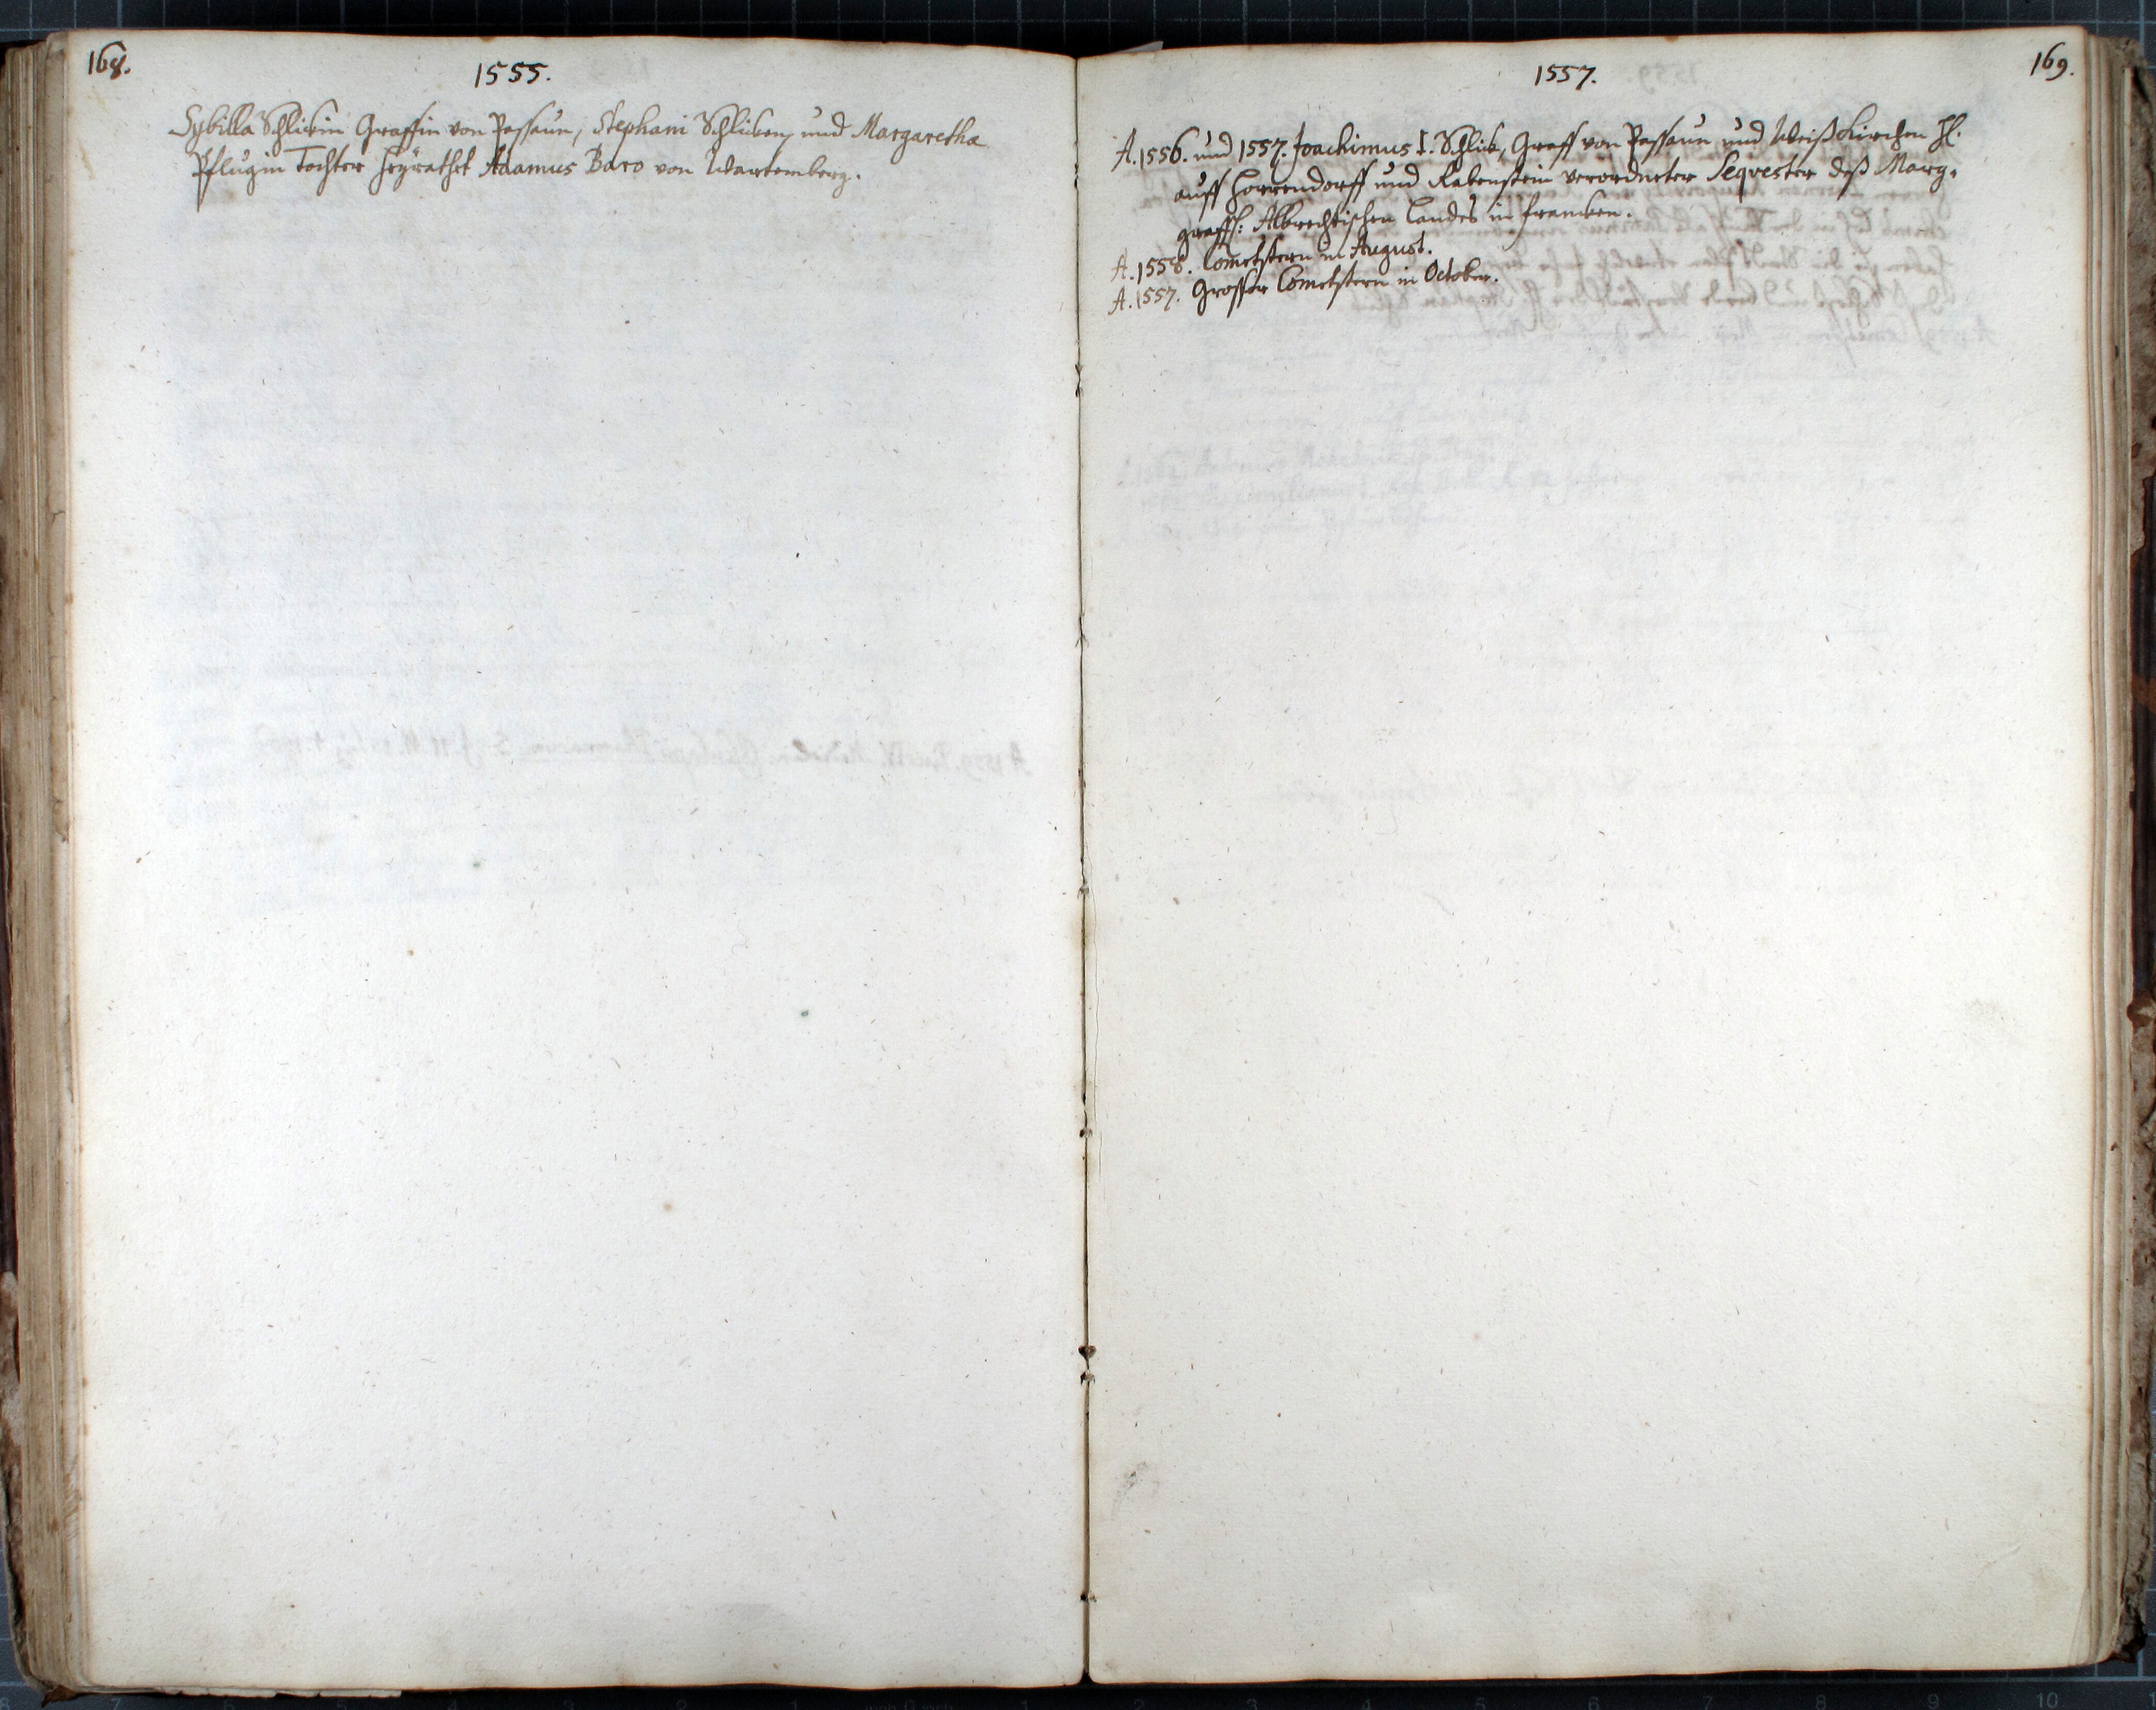 168.
1555.
Sybilla Schlickin Graffin von Passaun, Stephani Schlicken, und Margaretha
Pflugin Tochter heyrathet Adamus Baro von Wartemberg.
1557.
169.
A. 1556. und 1557. Joachimus I. Schlik, Graff von Passaun und Weißkirchen H.
auff und Rabenstein verordneter Seqvester deß Marg-
graffl: Albrechtischen Landes in Francken.
A. 1558. Cometstern in August.
A. 1557. Grosser Cometstern in October.